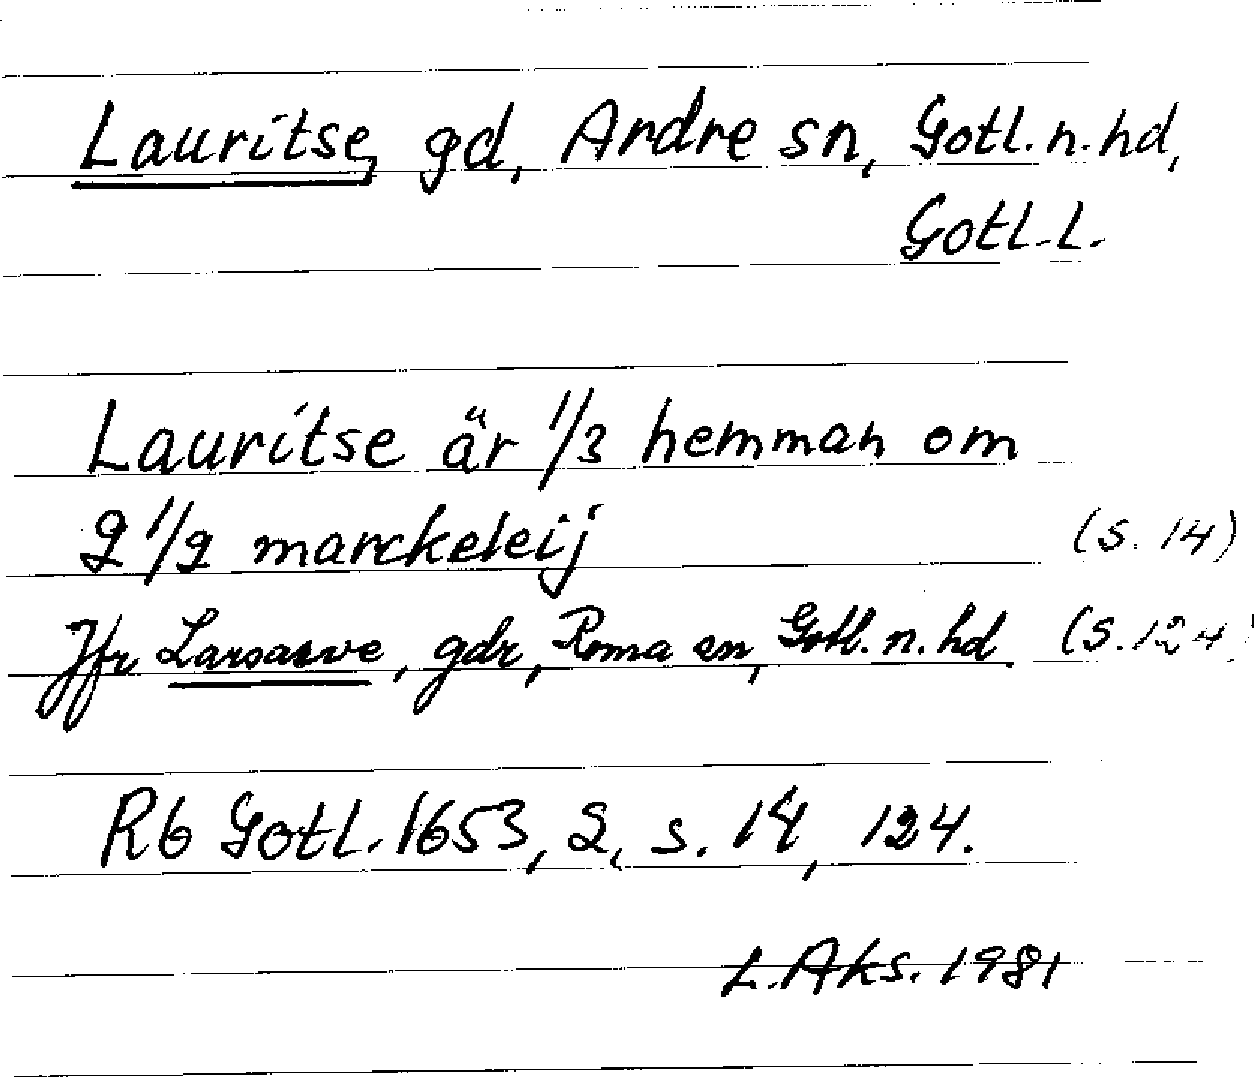 Lauritse, gd, Ardre sn, Gotl. n. hd,
Gotl. l.
Lauritse är 1/3 hemman om
2 1/2 marckeleij (s. 14)
Jfr Larsarve, gdr, Roma sn, Gotl. n. hd. (s. 124)
Rb Gotl. 1653, 2, s. 14, 124.
L. Aks. 1981